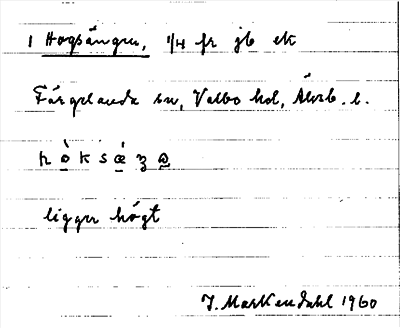 1 Hogsängen, 1/4 fr jb ek
Färgelanda sn, Valbo hd, Älvsb. l.
ligger högt
J. Markendahl 1960